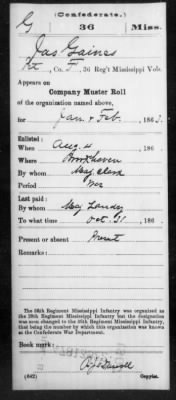 G
(Confederate.)
36 Miss.
Jas Gaines
Pt, Co. F, 36 Reg't Mississippi Vols.
Appears on
Company Muster Roll
of the organization named above,
for Jan & Feb, 1863.
Enlisted:
When Aug 4, 186
Where Brookhaven
By whom Maj. Clark
Period War
Last paid:
By whom Maj
To what time Oct. 31, 186
Present or absent Present
Remarks:
The 36th Regiment Mississippi Infantry was organized as
the Regiment Mississippi Infantry but the designation
was soon changed to the 36th Regiment Mississippi Infantry,
that being the number by which this organization was known at
the Confederate War Department.
Book mark:
(642)
Copyist.